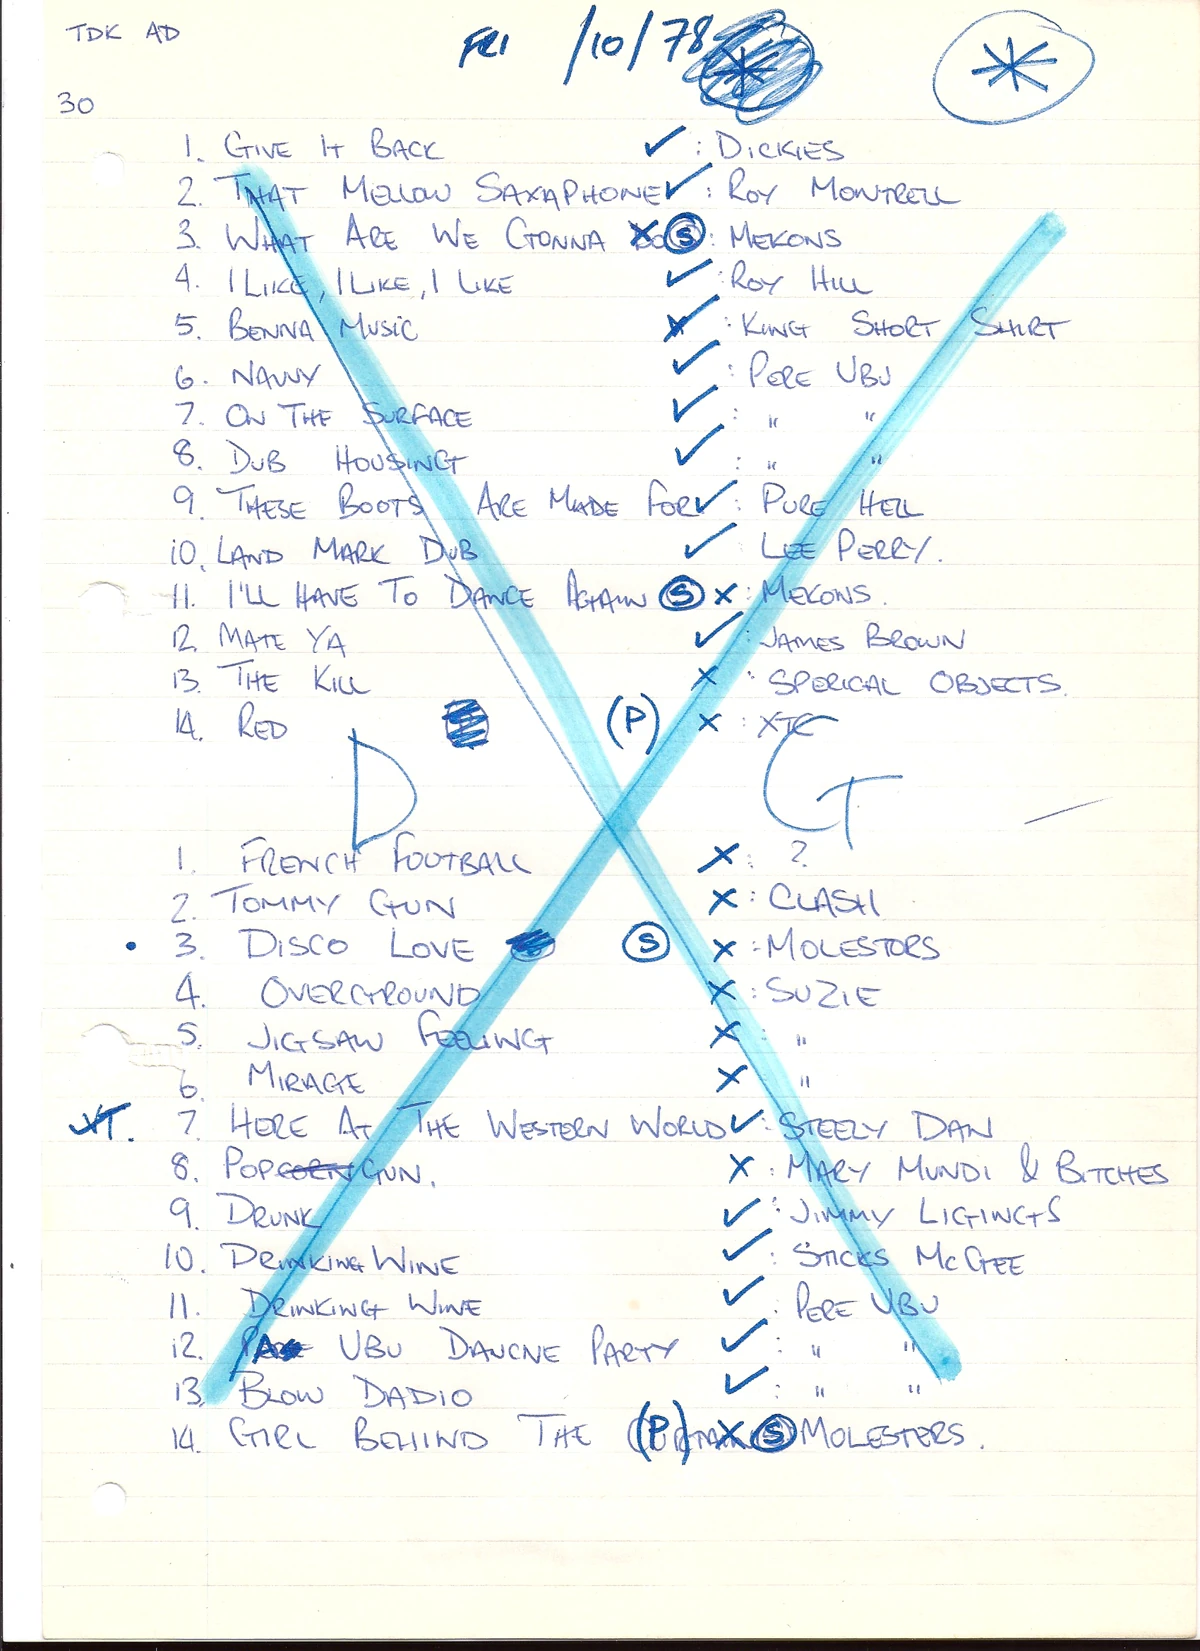 TDK AD
FRI /10/78 *
*
30
1. GIVE IT BACK ✓ : DICKIES
2. THAT MELLOW SAXAPHONE ✓ : ROY MONTRELL
3. WHAT ARE WE GONNA X S : MEKONS
4. I LIKE, I LIKE, I LIKE ✓ : ROY HILL
5. BENNA MUSIC X : KING SHORT SHIRT
6. NAVVY ✓ : PERE UBU
7. ON THE SURFACE ✓ : " "
8. DUB HOUSING ✓ : " "
9. THESE BOOTS ARE MADE FOR ✓ : PURE HELL
10. LAND MARK DUB ✓ : LEE PERRY.
11. I'LL HAVE TO DANCE AGAIN S X : MEKONS.
12. MATE YA ✓ : JAMES BROWN
13. THE KILL X : SPERICAL OBJECTS.
14. RED (P) X : XTC
D G
1. FRENCH FOOTBALL X : ?
2. TOMMY GUN X : CLASH
• 3. DISCO LOVE S X : MOLESTORS
4. OVERGROUND X : SUZIE
5. JIGSAW FEELING X : "
6. MIRAGE X "
7. HERE AT THE WESTERN WORLD ✓ : STEELY DAN
8. POPCORN GUN. X : MARY MUNDI & BITCHES
9. DRUNK ✓ : JIMMY LIGINGS
10. DRINKING WINE ✓ : STICKS McGEE
11. DRINKING WINE ✓ : PERE UBU
12. UBU DANCNE PARTY ✓ : " "
13. BLOW DADIO ✓ : " "
14. GIRL BEHIND THE (P) X S MOLESTERS.